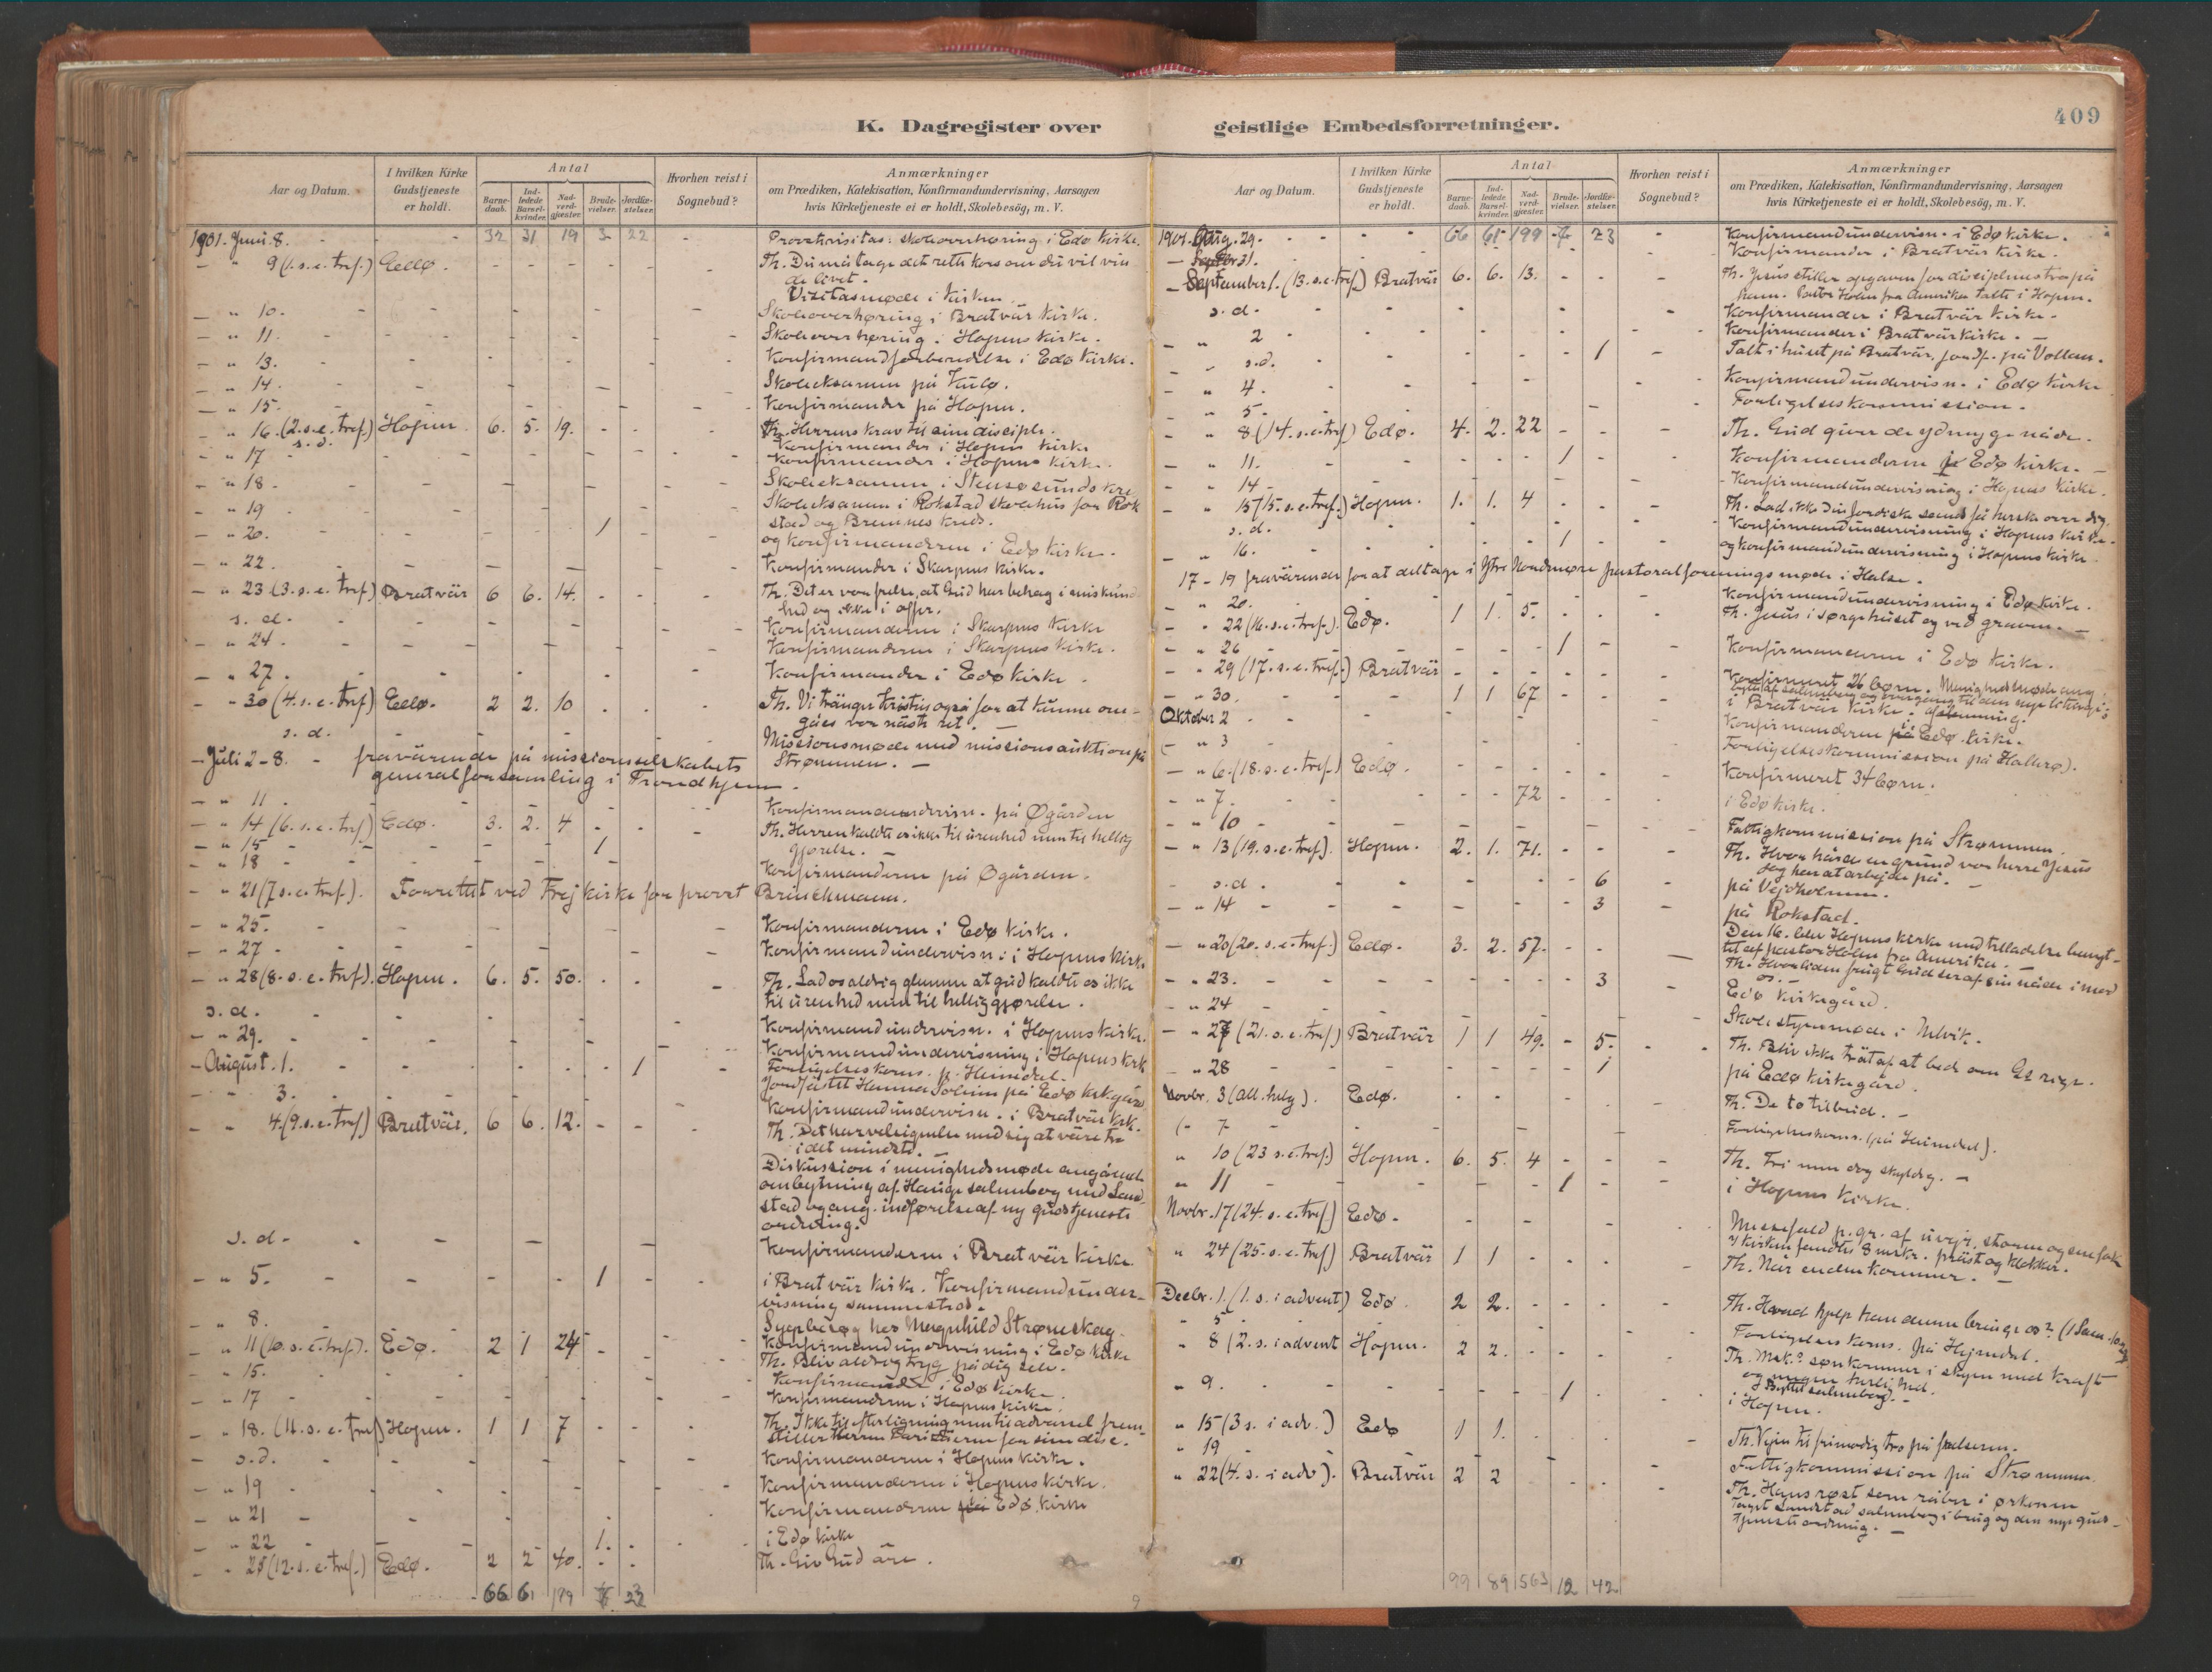 409
K. Dagregister over geistlige Embedsforretninger.
Aar og Datum.
I hvilken Kirke Gudstjeneste er holdt.
Antal
Barne-daab.
Ind-ledede Barsel-kvinder.
Nad-verd-gjæster.
Brude-vielser.
Jordfæ-stelser.
Hvorhen reist i Sognebud?
Anmærkninger
om Prædiken, Katekisation, Konfirmandundervisning, Aarsagen
hvis Kirketjeneste ei er holdt, Skolebesög, m. V.
1901. Juni 8. - - 32 31 19 3 22 - Provstevisitas: skoleoverhøring i Edø kirke.
- " 9 (1. s. e. tref.) Edø. - - - - - Th. Du må tage det rette kors om du vil vin
de livet.
Visitasmøde i kirken
- " 10. - Skoleoverhøring i Bratvär kirke.
- " 11. - Skoleoverhøring i Hopens kirke.
- " 13. - Konfirmandforberedelse i Edø kirke.
- " 14. - Skoleeksamen på Kulø.
- " 15. - Konfirmander på Hopen.
- " 16. (2. s. e. tref.) Hopen 6. 5. 19. - - - Th. Herrens krav til sine disciple.
s. d. Konfirmander i Hopens kirke
- " 17 - Konfirmander i Hopens kirke.
- " 18. - Skoleeksamen i Stensøsunds kre
- " 19 - Skoleeksamen i Rokstad skolehus for Rok
stad og Bremnes kreds.
- " 20. - 1 - og konfirmanderne i Edø kirke.
- " 22. - Konfirmander i Skarpnes kirke.
- " 23. (3. s. e. tref) Bratvär 6 6. 14. - - - Th. Det er vor frelse, at Gud har behag i miskund
hed og ikke i offer.
s. d. - Konfirmanderne i Skarpnes kirke
- " 24. - Konfirmanderne i Skarpnes kirke.
- " 27. - Konfirmander i Edø kirke.
- " 30 (4. s. e. tref) Edø. 2 2. 10 . . . Th. Vi tränger Kristus også for at kunne om-
gåes vor näste ret.
s. d. - Missionsmøde med missionsauktion på
Strømmen. -
- Juli 2-8. - fraværende på missionsselskabets
generalforsamling i Trondhjem.
- " 11. - Konfirmandundervisn. på Øgården
- " 14 (6. s. e. tref) Edø. 3. 2. 4 - - - Th. Herren kaldte os ikke til urenhed men til hellig
gjørelse. -
- " 15 - 1
- " 18 - Konfirmanderne på Øgården.
- " 21 (7 s. e. tref.). Forrettet ved Frej kirke for provst Brinchmann.
- " 25. - Konfirmanderne i Edø kirke.
- " 27 - Konfirmandundervisn. i Hopens kirke
- " 28 (8. s. e. tref). Hopen. 6. 5. 50. . . - Th. Lad os aldrig glemme at gud kaldte os ikke
til urenhed men til helliggjørelse.
s. d. - Konfirmandundervisn. i Hopens kirke.
- " 29. - Konfirmandundervisning i Hopens kirk
- August. 1. - 1 - Forligelseskoms. p. Heimdal.
Jordfästet Hanna Solem på Edø kirkegård
- " 3. - Konfirmandundervisn. i Bratvär kirk.
- " 4. (9. s. e. tref) Bratvär. 6 6. 12. - - - Th. Det har velsignelse med sig at være tro
i det mindste. -
Diskussion i menighedsmøde angående
ombytning af Hauge salmebog med Land
stad og ang. indførelse af ny gudstjeneste
ordning.
s. d. - Konfirmanderne i Bratvär kirke
- " 5. - 1 - i Bratvär kirke. Konfirmandunder-
visning sammesteds.
" 8. - Sygebesøg hos Magnhild Strømskag.
" 11 (10. s. e. tref). Edø. 2 1 24 - - - Konfirmandundervisning i Edø kirke
Th. Bliv aldrig tryg på dig selv.
" 15. - Konfirmander i Edø kirke.
- " 17 - Konfirmanderne i Hopens kirke.
- " 18. (11. s. e. tref) Hopen. 1 1 7 - - - Th. Ikke til efterligning men til advarsel frem-
stiller Herren farisæerne for sine disc.
- s. d. - Konfirmanderne i Hopens kirke.
- " 19 - Konfirmanderne i Hopens kirke.
- " 21 - Konfirmanderne på Edø kirke
- " 22 - 1. - i Edø kirke
- " 25 (12. s. e. tref.) Edø. 2 2 40. - - Th. Giv Gud äre.
66 61 199 23
Aar og Datum.
I hvilken Kirke Gudstjeneste er holdt.
Antal
Barne-daab.
Ind-ledede Barsel-kvinder.
Nad-verd-gjæster.
Brude-vielser.
Jordfæ-stelser.
Hvorhen reist i Sognebud?
Anmærkninger
om Prædiken, Katekisation, Konfirmandundervisning, Aarsagen
hvis Kirketjeneste ei er holdt, Skolebesög, m. V.
1901. Aug. 29. - - 66 61 199 23 - Konfirmandundervisn. i Edø kirke.
- 31. Konfirmander i Bratvär kirke.
- September 1. (13. s. e. tref.) Bratvär 6. 6. 13. - - - Th. Jesus stiller opgaven for disciplenes tro på
ham. Pastor Holm fra Amerika talte i Hopen.
s. d. - Konfirmander i Bratvär kirke.
- " 2 - Konfirmander i Bratvär kirke. -
- " s. d. - 1 - Talt i huset på Bratvär, jordf. på Vollan.
- " 4. - Konfirmandundervisn. i Edø kirke
- " 5. - Forligelseskommission.
- " 8 (14. s. e. tref) Edø. 4. 2. 22 - - - Th. Gud giver de ydmyge nåde.
- " 11. - 1 - Konfirmanderne i Edø kirke. -
- " 14 - Konfirmandundervisning i Hopens kirke.
- " 15 (15. s. e. tref.) Hopen. 1. 1. 4 - - - Th. Lad ikke din jordiske sands få herske over dig.
s. d. - Konfirmandundervisning i Hopens kirke.
- " 16. - 1 - og konfirmandundervisning i Hopens kirke.
17 - 19 fraværende for at deltage i Ytre Nordmøre pastoralforenings møde i Halse.
- " 20. - Konfirmandundervisning i Edø kirke.
- " 22 (16. s. e. tref.). Edø. 1 1. 5. - - - Th. Jesus i sørgehuset og ved graven. -
- " 26 - 1 - Konfirmanderne i Edø kirke.
- " 29 (17. s. e. tref.) Bratvär - Konfirmeret 26 børn. Menighedsmøde ang.
- " 30. - 1 1 67 - - - i Bratvär kirke.
Oktober 2 - Konfirmanderne i Edø kirke.
- " 3 - Forligelseskommission på Hallerø).
- " 6. (18. s. e. tref.) Edø. - Konfirmeret 34 børn.
- " 7. - 72 - i Edø kirke.
- " 10 - Fattigkommission på Strømmen.
- " 13 (19. s. e. tref). Hopen. 2. 1. 71. - - - Th. Hvor hård en grund vor herre Jesus
dog har at arbejde på. -
- s. d. - 6 - på Vejholmen.
- " 14 - 3 - på Rokstad.
- " 20 (20. s. e. tref.) Edø. 3. 2. 57. - - - Den 16. blev Hopens kirke med tilladelse benyt-
tet af pastor Holm fra Amerika. -
Th. Hvor liden frugt Gud ser af sin nåde imod
os. -
- " 23. - 3 - Edø kirkegård.
- " 24 - Skolestyremøde i Ulvik.
- " 27 (21. s. e. tref) Bratvär 1 1 49. - 5. - Th. Bliv ikke trät af at bede om Gs rige.
- " 28 - 1 - på Edø kirkegård.
Novbr. 3 (all. helg). Edø. - Th. De to tilbud. -
(- 7 - Forligelseskoms. (på Heimdal).
" 10 (23 s. e. tref) Hopen. 6. 5. 4 - - - Th. Fri men dog skyldig. -
" 11 - 1 - i Hopens kirke.
Novbr. 17 (24. s. e. tref) Edø. - Messefald p. gr. af uvejr, storm og snefok
I kirken fandtes 8 mskr. präst og klokker.
" 24 (25. s. e. tref) Bratvär 1 1 - - - Th. Når enden kommer. -
Decbr. 1. (1. s. i advent) Edø. 2 2. - - - Th. Hvad hjelp kan denne bringe os? (1 Sam. 10
" 5 - Forligelseskoms. på Hejmdal.
" 8 (2. s. i advent Hopen. 2 2. - - - Th. Msk.s søn kommer i skyen med kraft
og megen herlighed.
Byttet salmebog. -
" 9. - 1 - i Hopen.
" 15 (3 s. i adv.) Edø 1 1. - Th. Vejen til frimodig tro på frelseren.
" 19 - Fattigkommission på Strømmen
" 22 (4. s. i adv). Bratvär 2 2 - Th. Hans røst som råber i ørkenen
Taget Landstad salmebog i brug og den nye guds-
tjenesteordning. -
99 89 563 12 42